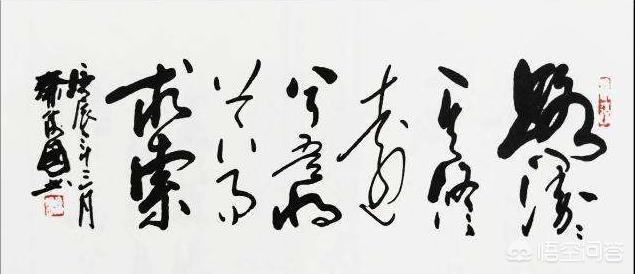 路漫漫
其修
遠
兮吾将
上下而
求索
庚辰年三月
國书
悟空问答